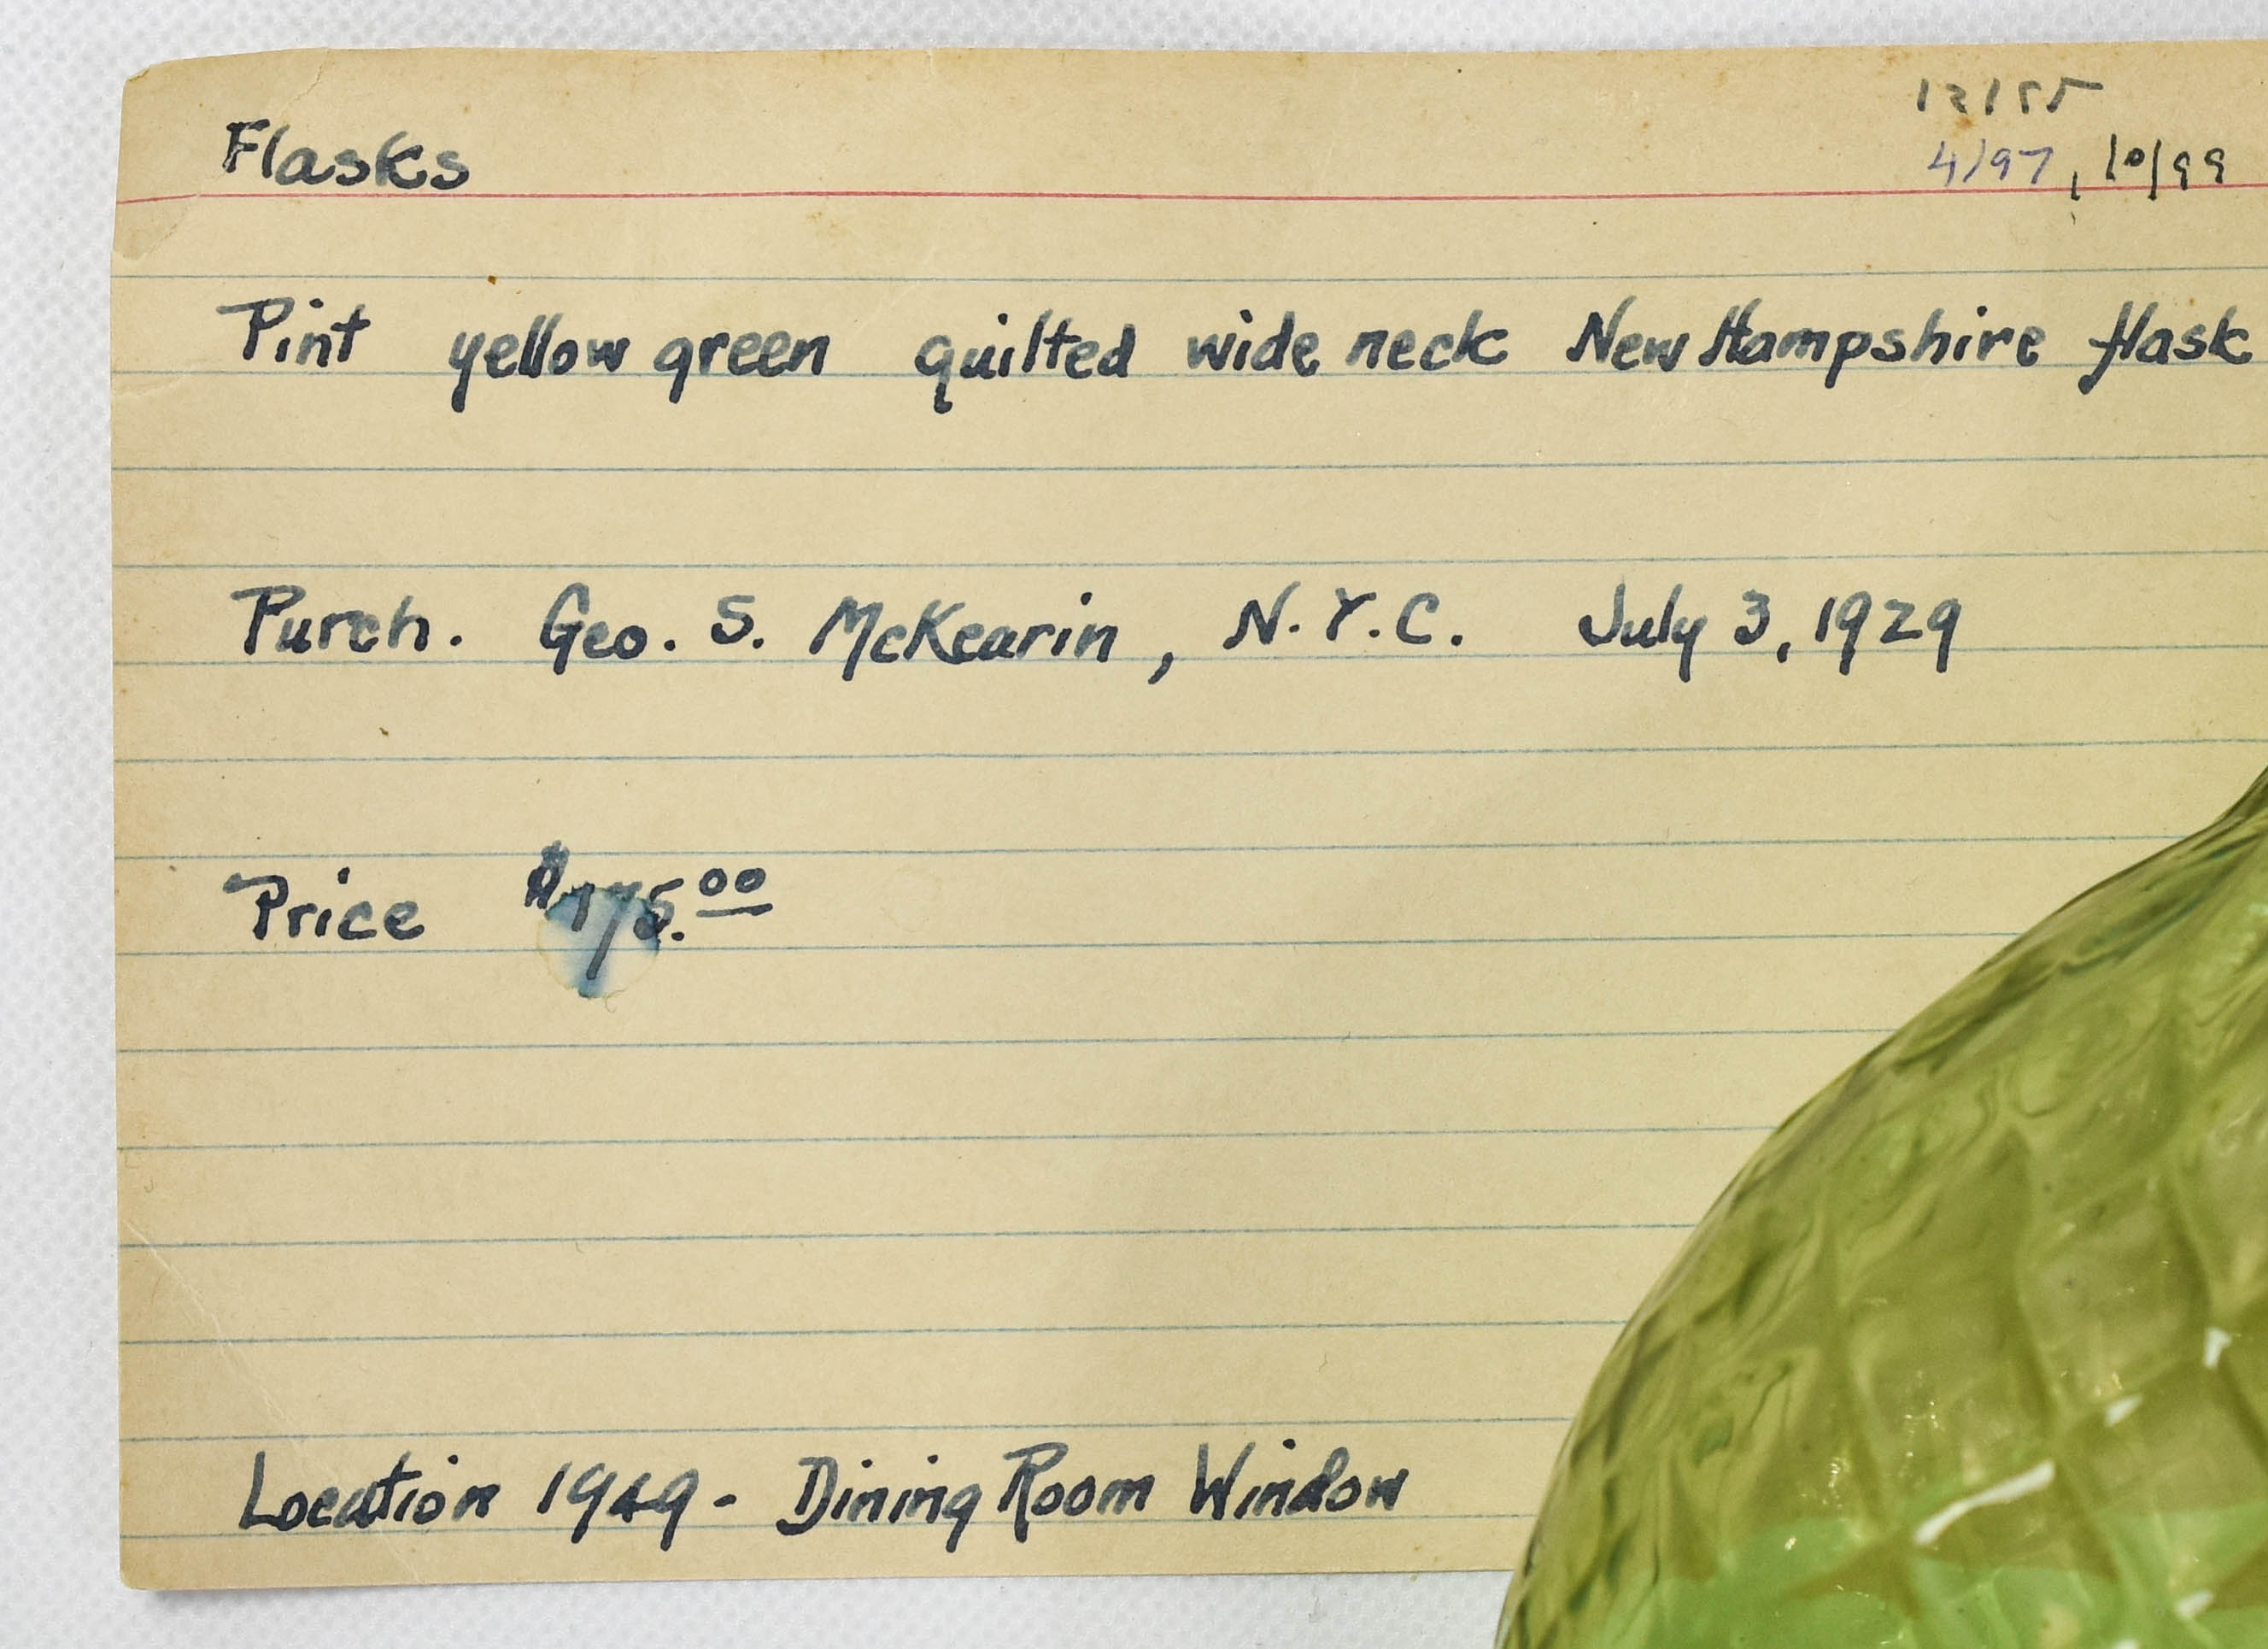 Flasks
4/97, 10/99
Pint yellow green quilted wide neck New Hampshire flask
Purch. Geo. S. McKearin, N.Y.C. July 3, 1929
Price $175.00
Location 1949 - Dining Room Window